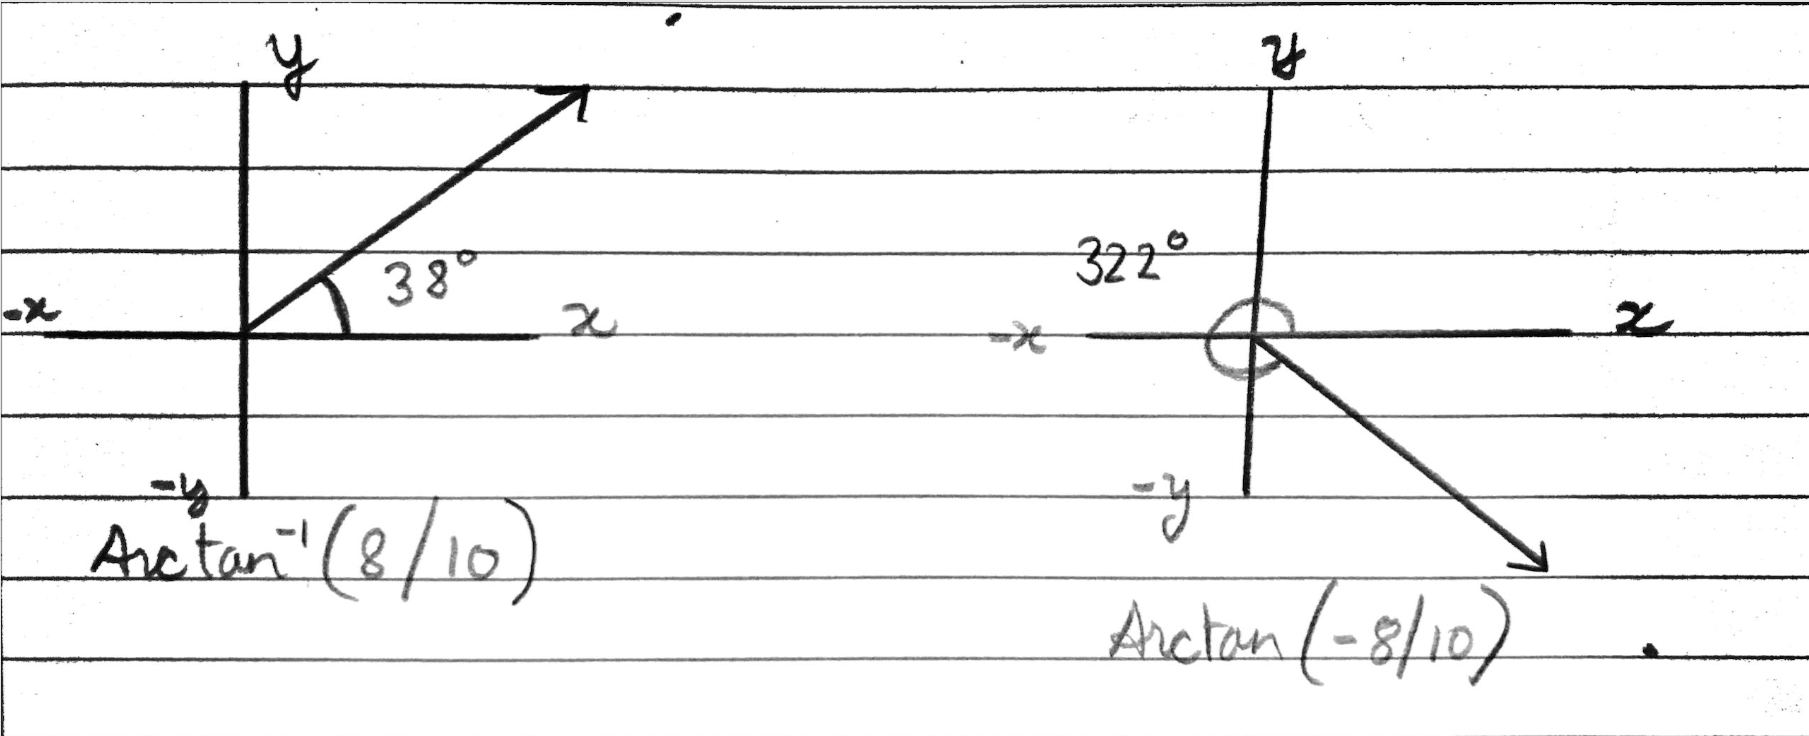 y
38°
-x
x
-y
Arctan⁻¹(8/10)
y
322°
-x
x
-y
Arctan(-8/10)